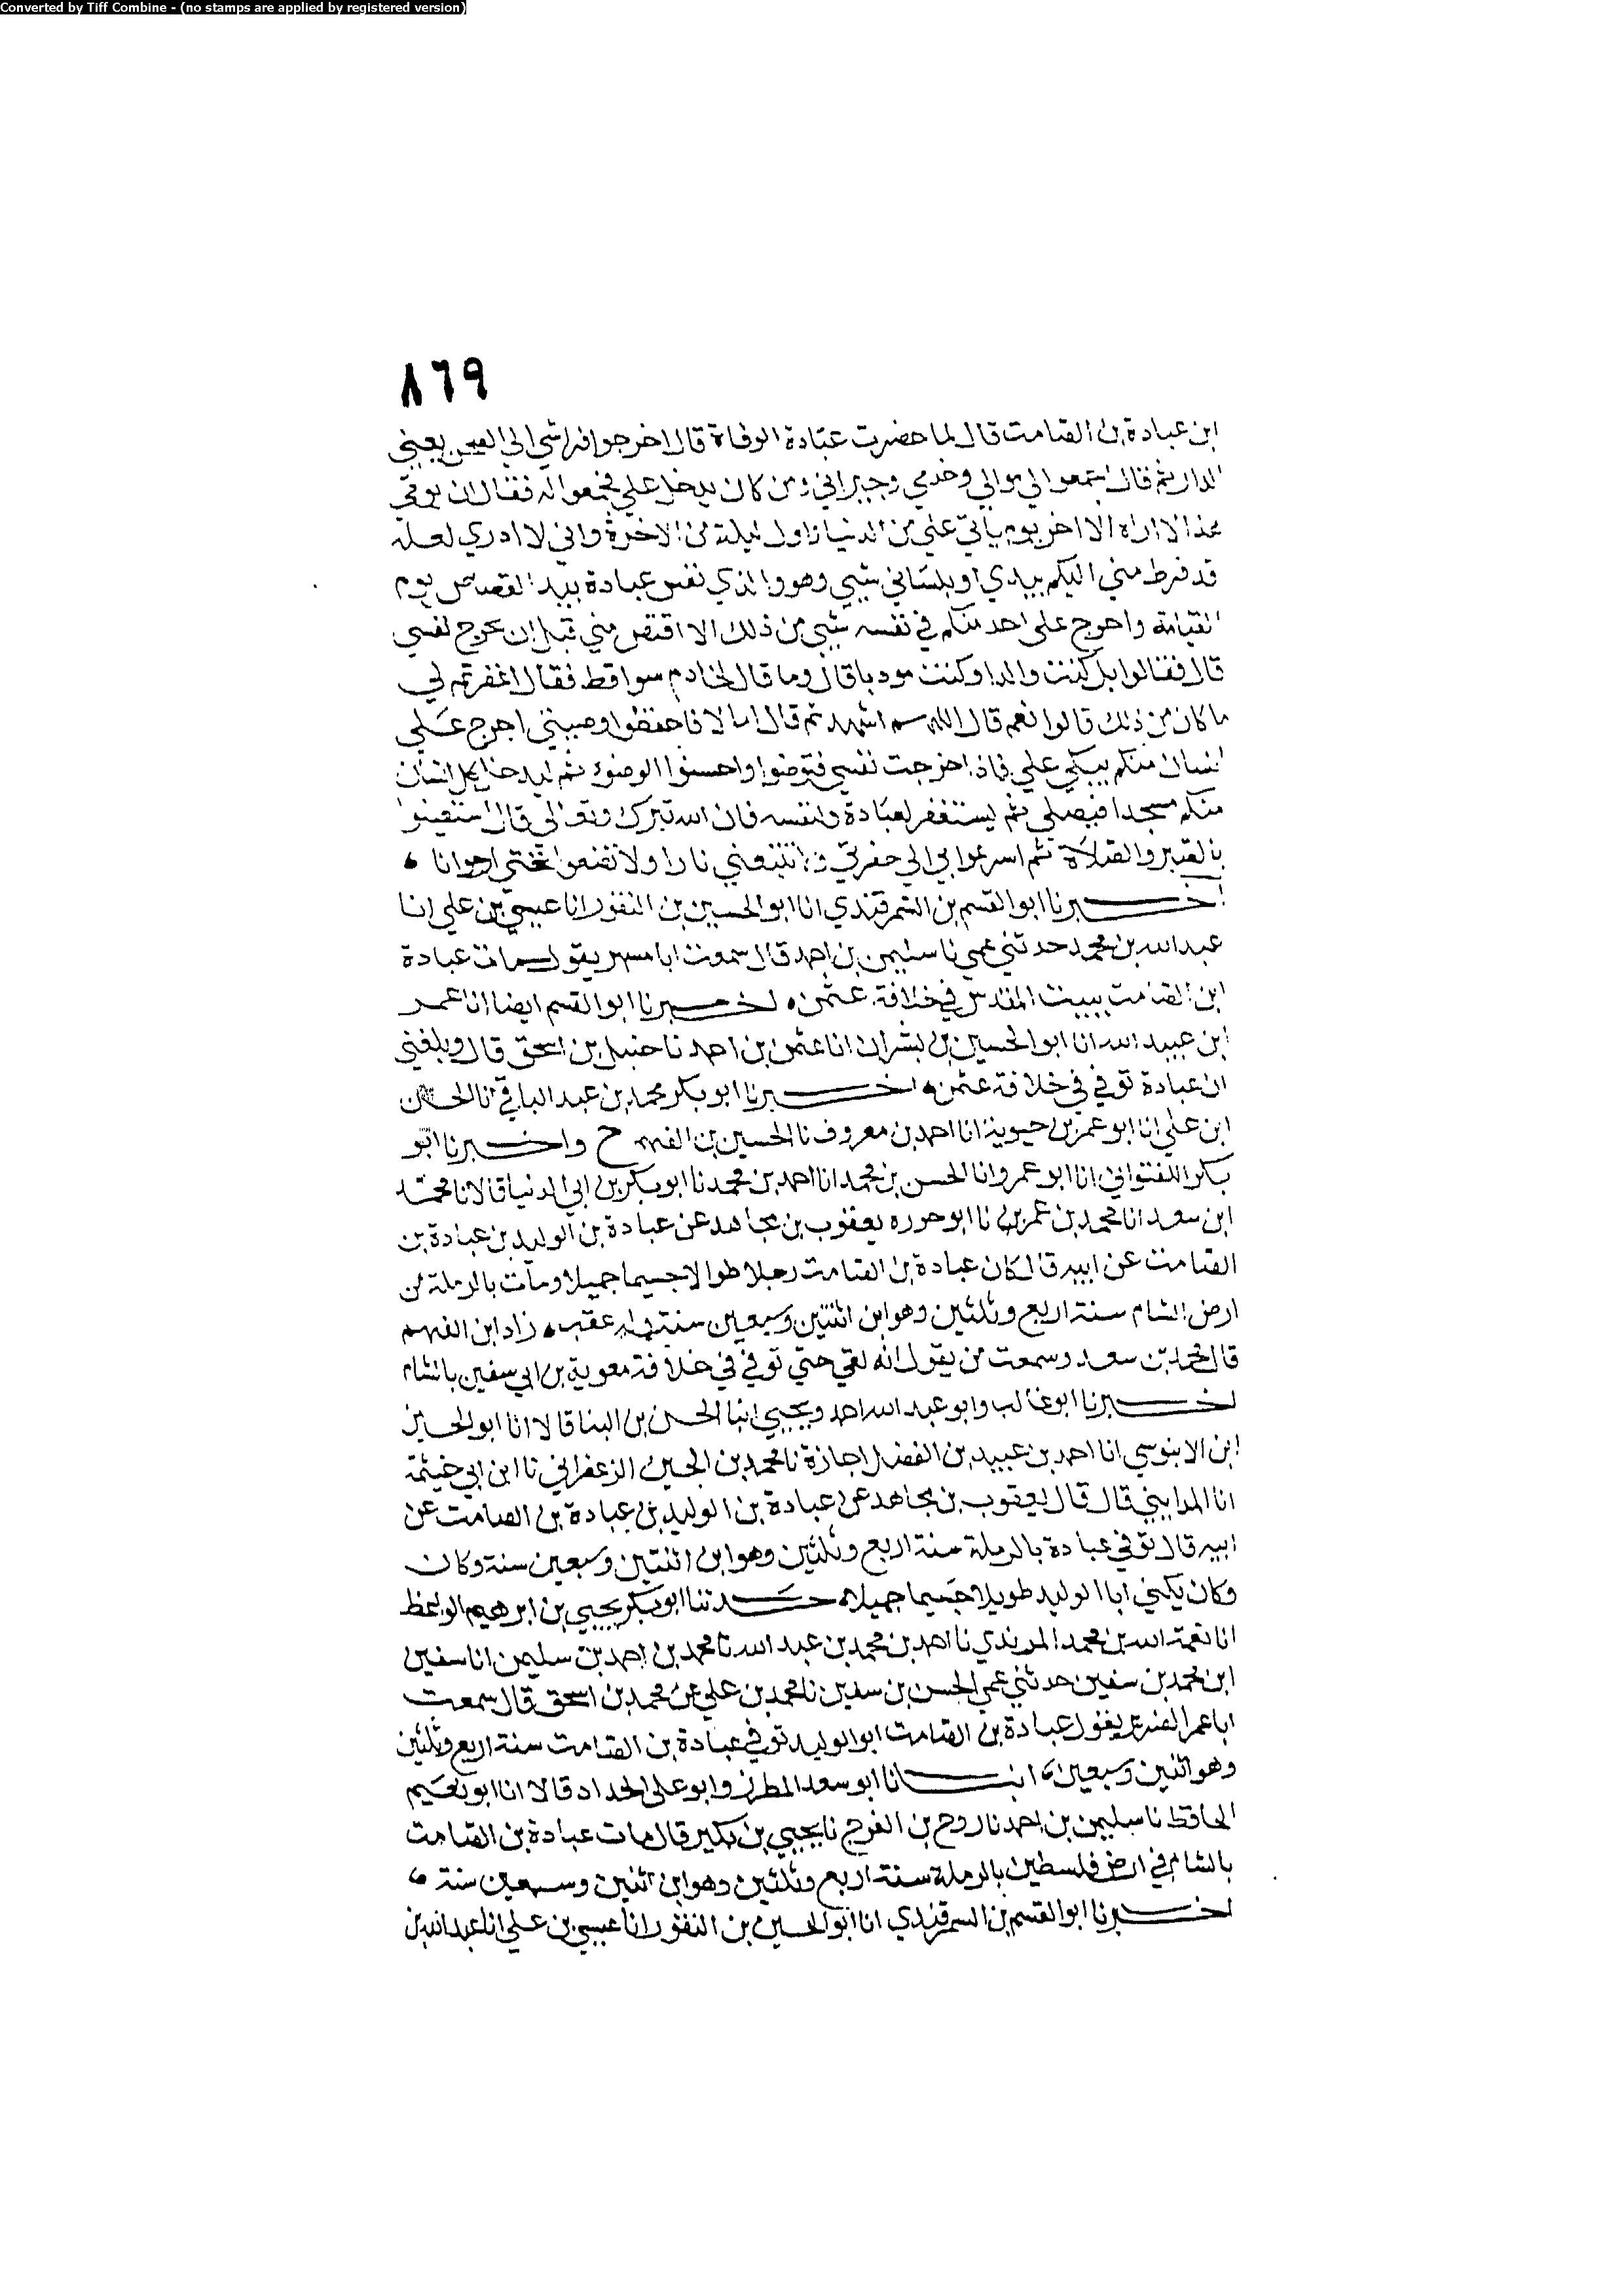 Converted by Tiff Combine - (no stamps are applied by registered version)
٨٦٩
ابن عبادة بن الصامت قال لما حضرت عبادة الوفاة قال اخرجوا فراشي الى الصحن يعني
الدار ثم قال اجمعوا لي موالي وخدمي وجيراني ومن كان يدخل علي فجمعوا له فقال ان يومي
هذا لا اراه الا اخر يوم ياتي علي من الدنيا واول ليلة من الاخرة واني لا ادري لعله
قد فرط مني اليكم بيدي او بلساني شيي وهو والذي نفس عبادة بيده القصاص يوم
القيامة واحرج على احد منكم في نفسه شيي من ذلك الا اقتص مني قبل ان تخرج نفسي
قال فقالوا بل كنت والدا وكنت مودبا قال وما قال لخادم سوا قط فقال اغفرتم لي
ما كان من ذلك قالوا نعم قال اللهم اشهد ثم قال اما لا فاحفظوا وصيتي احرج علي
انسان منكم يبكي علي فاذا خرجت نفسي فتوضوا واحسنوا الوضوء ثم ليدخل كل انسان
منكم مسجدا فيصلي ثم يستغفر لعبادة ولنفسه فان الله تبرك وتعالى قال استعينوا
بالصبر والصلاة ثم اسرعوا بي الى حفرتي ولا تتبعوني نارا ولا تضعوا تحتي ارجوانا
اخبرنا ابو القسم بن السمرقندي انا ابو الحسين بن النقور انا عيسى بن علي انا
عبد الله بن محمد حدثني عمي نا سليمن بن احمد قال سمعت ابا مسهر يقول مات عبادة
ابن الصامت ببيت المقدس في خلافة عثمن اخبرنا ابو القسم ايضا انا عمر
ابن عبيد الله انا ابو الحسين بن بشران انا عثمن بن احمد نا حنبل بن اسحق قال وبلغني
ان عبادة توفي في خلافة عثمن اخبرنا ابو بكر محمد بن عبد الباقي انا الحسن
ابن علي انا ابو عمر بن حيوية انا احمد بن معروف نا الحسين بن الفهم ح واخبرنا ابو
بكر اللفتواني انا ابو عمرو انا الحسن بن محمد انا احمد بن محمد نا ابو بكر بن ابي الدنيا قالا نا محمد
ابن سعد انا محمد بن عمر نا ابو حوره يعقوب بن مجاهد عن عبادة بن الوليد بن عبادة بن
الصامت عن ابيه قال كان عبادة بن الصامت رجلا طوالا جسيما جميلا ومات بالرملة من
ارض الشام سنة اربع وثلثين وهو ابن اثنتين وسبعين سنة وله عقب زاد ابن الفهم
قال محمد بن سعد وسمعت من يقول انه بقي حتى توفي في خلافة معوية بن ابي سفين بالشام
اخبرنا ابو غالب وابو عبد الله احمد ويحيى ابنا الحسن بن البنا قالا انا ابو الحسين
ابن الابنوسي انا احمد بن عبيد بن الفضل اجازة نا محمد بن الحسين الزعفراني نا ابن ابي خيثمة
انا المدايني قال قال يعقوب بن مجاهد عن عبادة بن الوليد بن عبادة بن الصامت عن
ابيه قال توفي عبادة بالرملة سنة اربع وثلثين وهو ابن اثنتين وسبعين سنة وكان
وكان يكنى ابا الوليد طويلا جسيما جميلا حدثنا ابو بكر يحيى بن ابرهيم الواعظ
انا نعمة الله بن محمد المرندي نا احمد بن محمد بن عبد الله نا محمد بن احمد بن سليمن انا سفين
ابن محمد بن سفين حدثني عمي الحسن بن سفين نا محمد بن علي عن محمد بن اسحق قال سمعت
ابا عمر الضرير يقول عبادة بن الصامت ابو الوليد توفي عبادة بن الصامت سنة اربع وثلثين
وهو اثنين وسبعين انبانا ابو سعد المطرز وابو علي الحداد قالا انا ابو نعيم
الحافظ نا سليمن بن احمد نا روح بن الفرج نا يحيى بن بكير قال مات عبادة بن الصامت
بالشام في ارض فلسطين بالرملة سنة اربع وثلثين وهو ابن اثنين وسبعين سنة
اخبرنا ابو القسم بن السمرقندي انا ابو الحسين بن النقور انا عيسى بن علي انا عبد الله بن